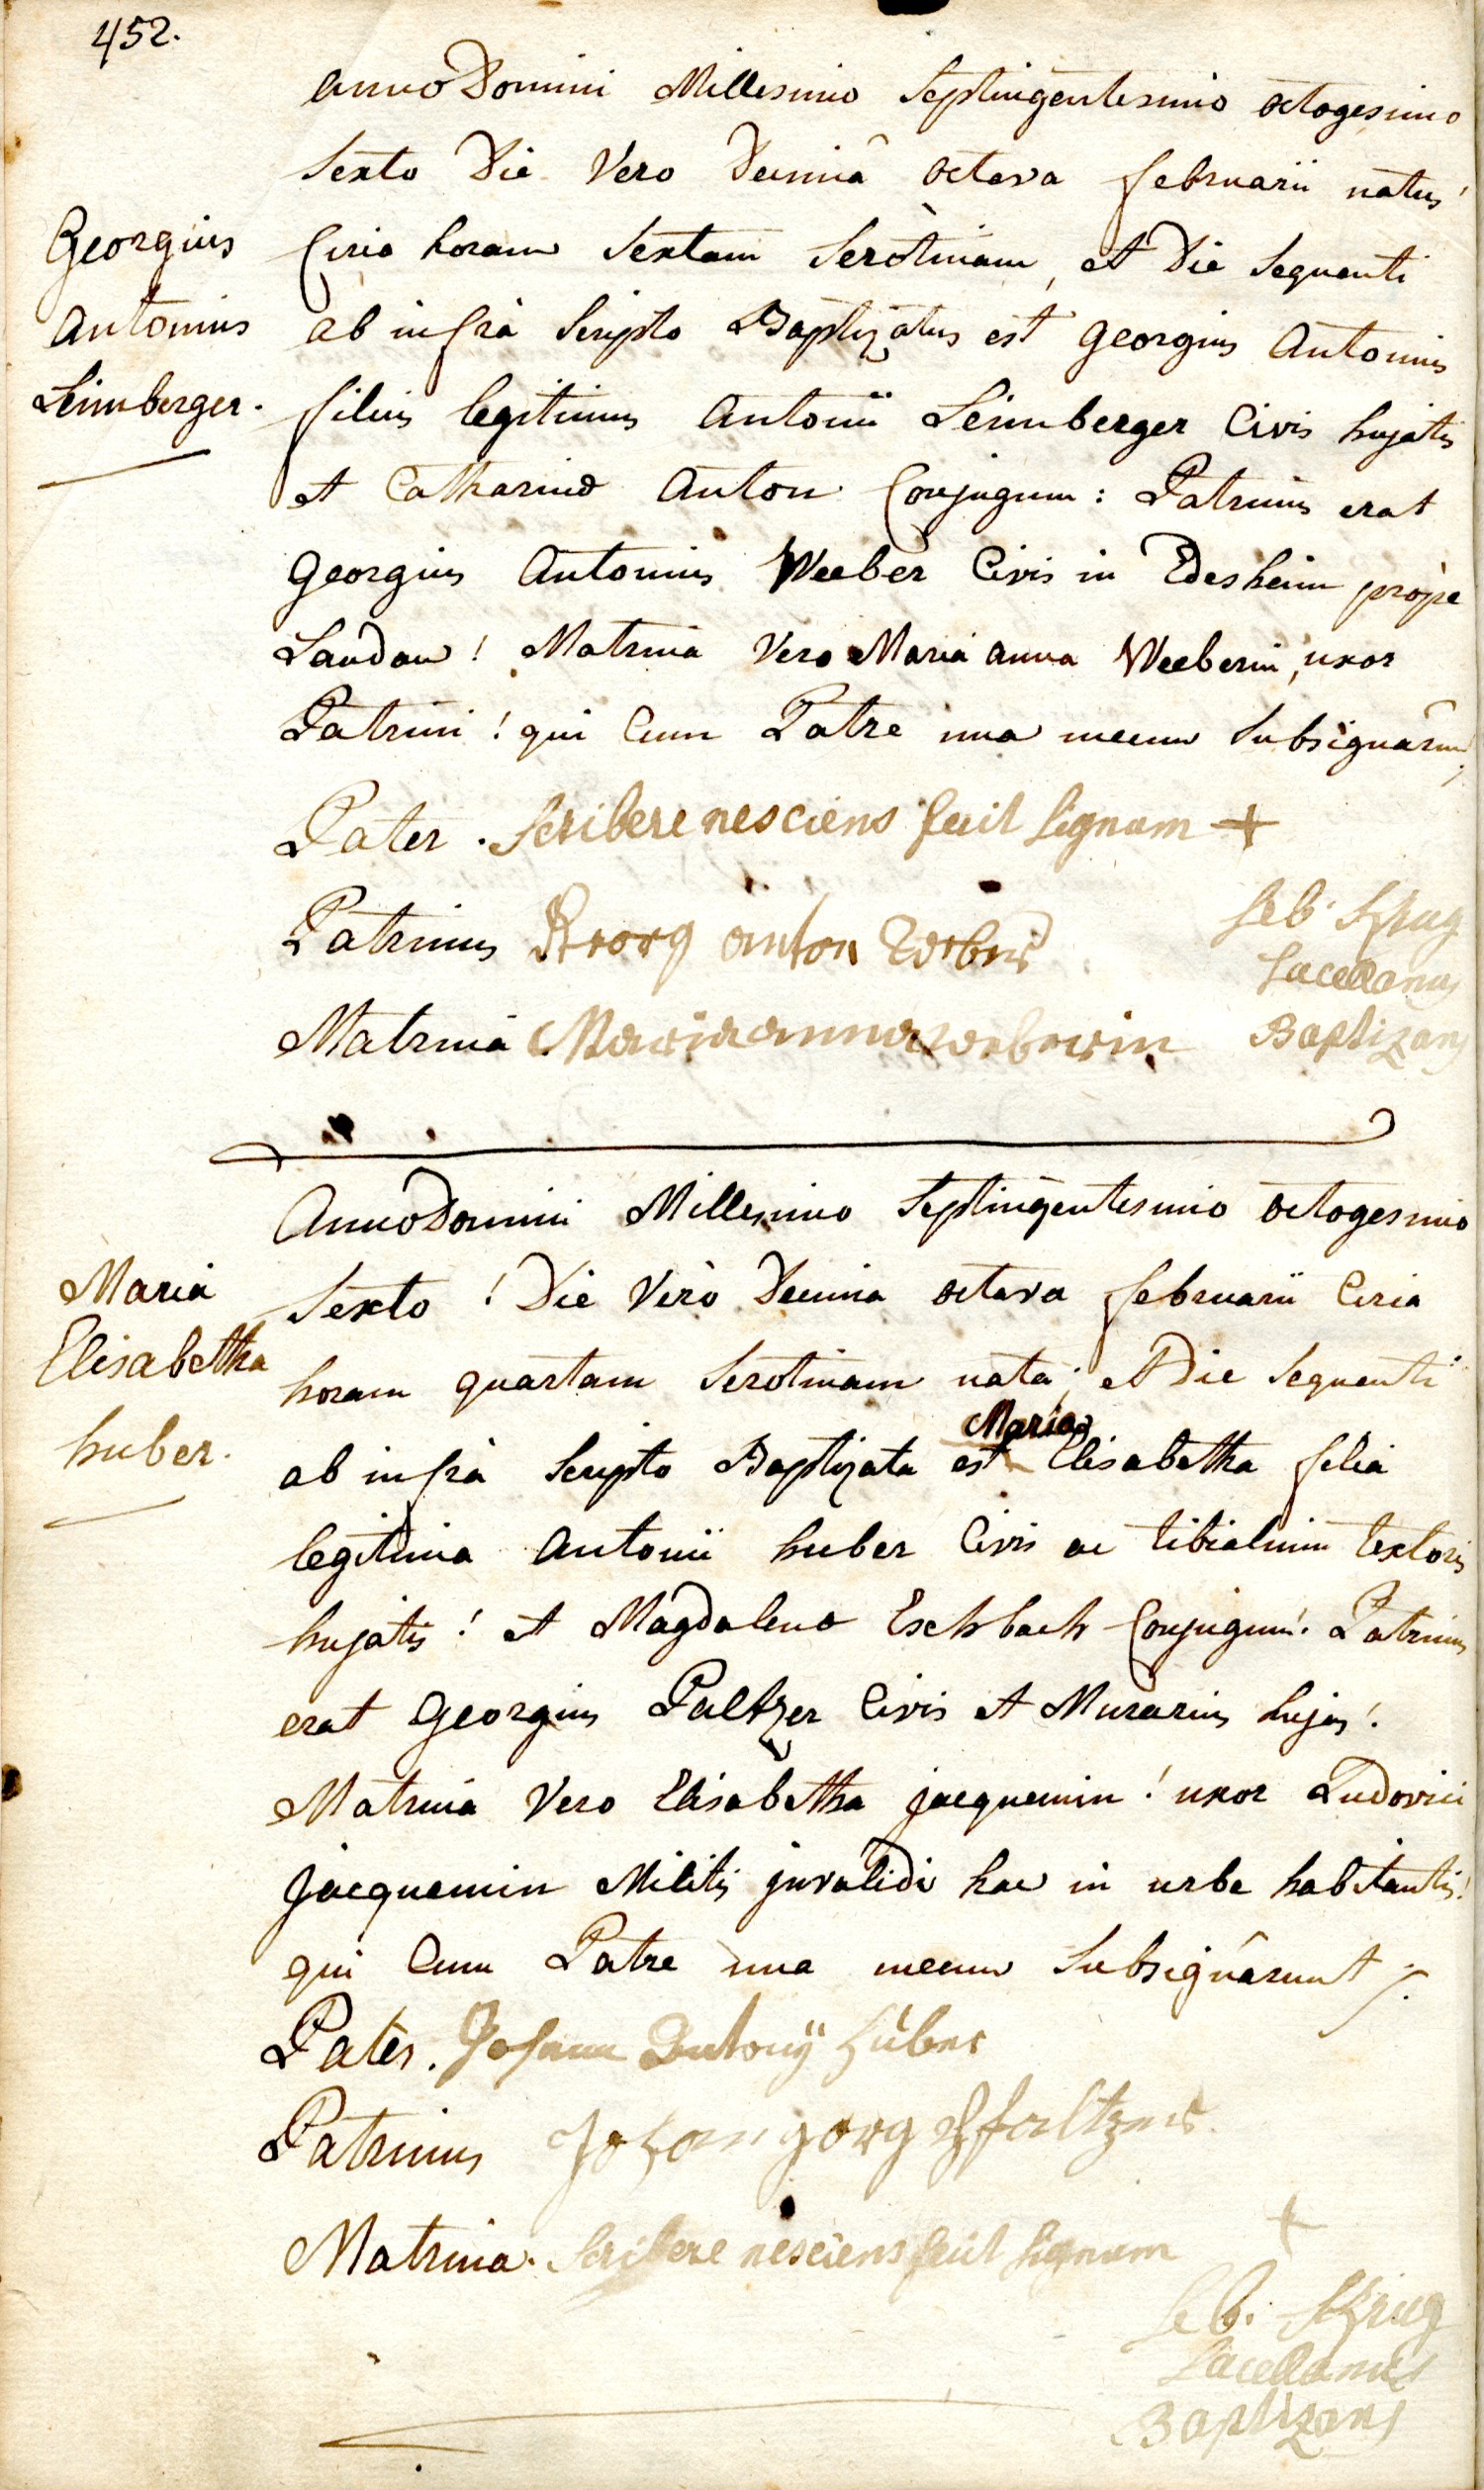 452.
anno Domini Millesimo Septingentesimo octogesimo
Sexto Die Vero Decimâ octava februarii natus
Georgius
Circa horam Sextam Serotinam, et Die Sequenti
Antonius
ab infrà Scripto Baptizatus est Georgius Antonius
Leimberger.
filius legitimus Antonii Leimberger Civis hujatis
et Catharinæ Anton Conjugum: Patrinus erat
Georgius Antonius Weeber Civis in Edesheim prope
Landau! Matrina Vero Maria Anna Weeberin, uxor
Patrini! qui Cum Patre una mecum Subsignârunt
Pater. Scribere nesciens fecit Signum +
Patrinus Georg anton Weber
Seb. Krug
Sacellanus
Matrina Maria anna weberin
Baptizans
Anno Domini Millesimo Septingentesimo octogesimo
Maria
Sexto! Die Verò Decima octava februarii Circa
Elisabetha
horam quartam Serotinam nata; et Die Sequenti
huber.
Maria
ab infrà Scripto Baptizata est Elisabetha filia
legitima Antonii huber Civis ac tibialium textoris
hujatis! et Magdalenæ Eschbach Conjugum! Patrinus
erat Georgius Paltzer Civis et Murarius hujas!
Matrina Vero Elisabetha jacquemin! uxor Ludovici
jacquemin Militis invalidi hac in urbe habitantis!
qui Cum Patre una mecum Subsignârunt
Pater. Johann Antonÿ Huber
Patrinus Johan görg Pfaltzer
Matrina. Scribere nesciens fecit Signum +
Seb. Krug
Sacellanus
Baptizans